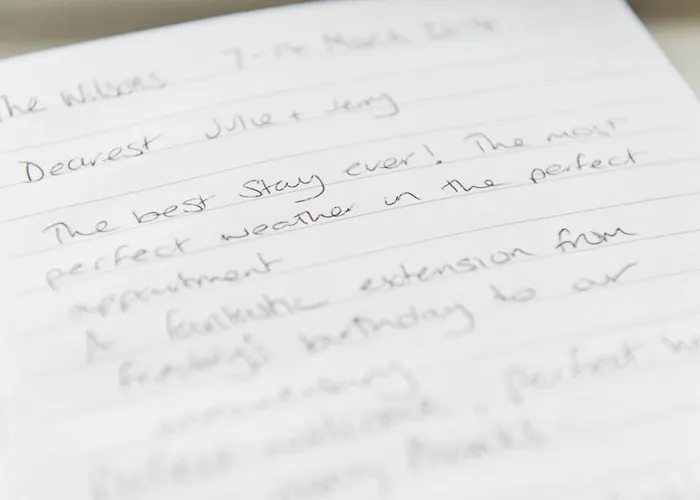 The Wilsons 7-14 March 2014
Dearest Julie + Jerry
The best Stay ever! The most
perfect weather in the perfect
appartment
A fantastic extension from
Freddy's birthday to our
anniversary
Perfect welcome, perfect
many thanks